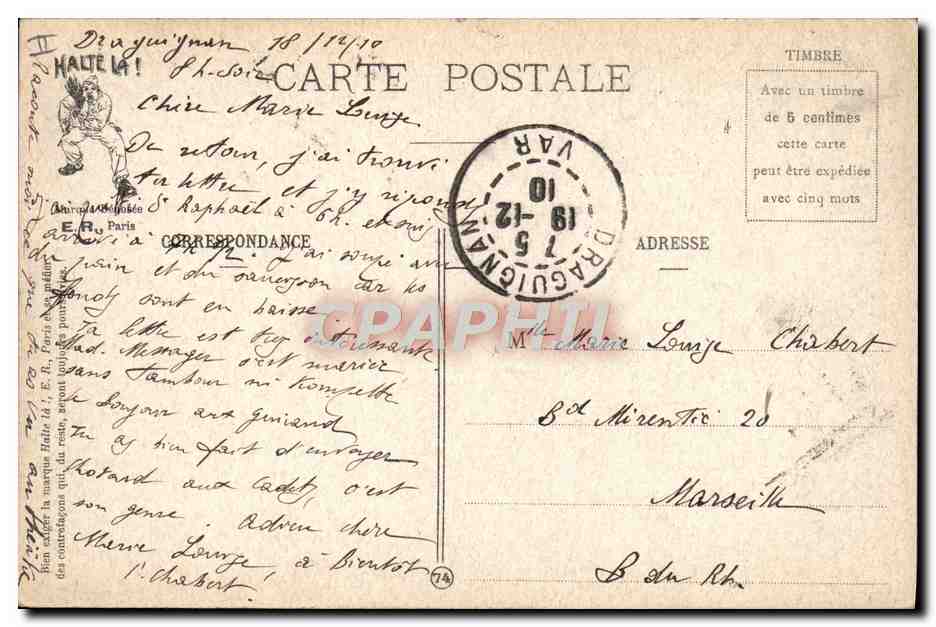 Draguignan 18/12/10
8h-Soir
HALTE LÀ !
CARTE POSTALE
Chère Marie Louise
De retour, j'ai trouvé
ta lettre et j'y répond
St Raphaël à 6h. et suis
arrivé à
j'ai soupé avec
pain et du saucisson car les
fonds sont en baisse
Ta lettre est très intéressante
Mad. Messager s'est mariée
sans tambour ni trompette
le bonjour aux
Tu as bien fait d'envoyer
Chotard aux Cadets, c'est
son genre. Adieu chère
Marie Louise à Bientôt
Chabert
Marque Déposée
E. R., Paris
CORRESPONDANCE
Bien exiger la marque Halte là !, E. R., Paris et se méfier
des contrefaçons qui, du reste, seront toujours poursuivies.
74
DRAGUIGNAN
VAR
7 5
19-12
10
TIMBRE
Avec un timbre
de 5 centimes
cette carte
peut être expédiée
avec cinq mots
ADRESSE
Mlle Marie Louise Chabert
Bd Mirentié 20
Marseille
B du Rh
CPAPHIL